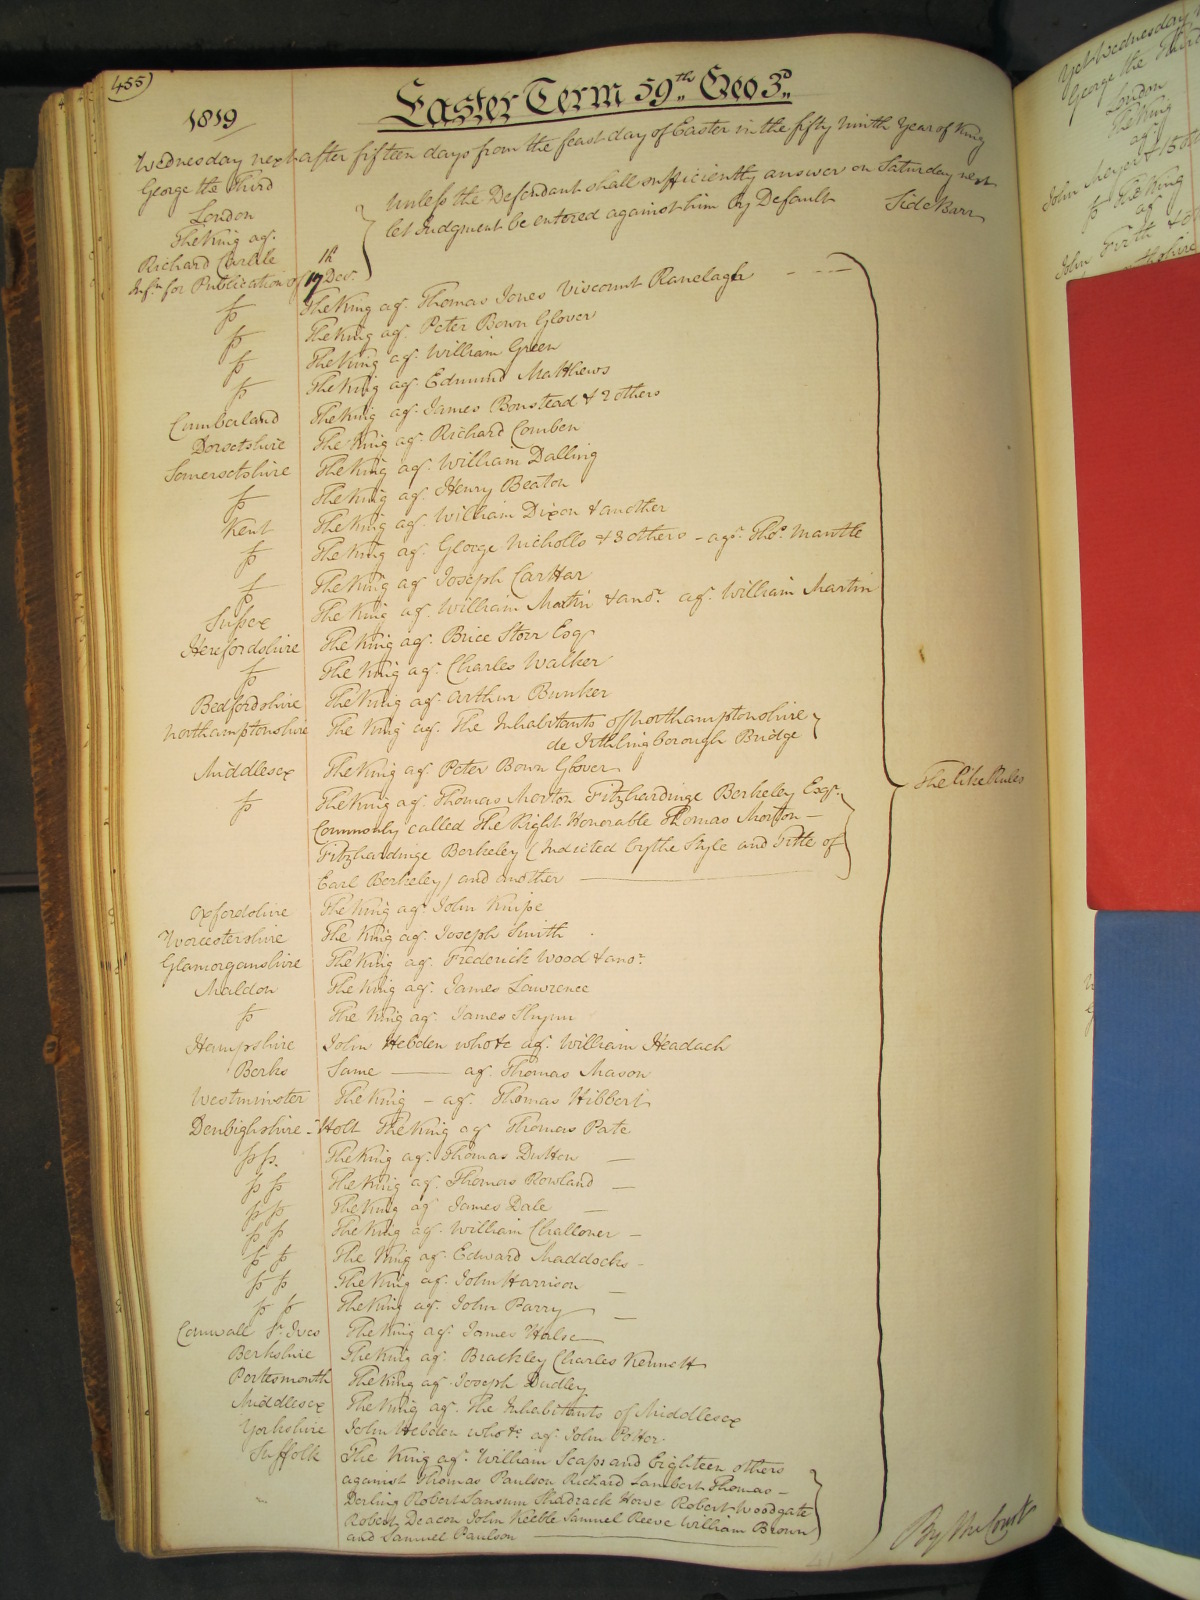 455)
1819
Easter Term 59th Geo 3d
Wednesday next after fifteen days from the feast day of Easter in the fifty ninth Year of King
George the Third
London
The King agt.
Richard Carlile
Infn for Publication of 17th Decr.
Unless the Defendant shall sufficiently answer on Saturday next
let Judgment be entered against him by Default Side Barr
The King agt. Thomas Jones Viscount Ranelagh
The King agt. Peter Bown Glover
The King agt. William Green
The King agt. Edmund Matthews
Cumberland The King agt. James Bonstead & 2 others
Dorsetshire The King agt. Richard Comben
Somersetshire The King agt. William Dalling
The King agt. Henry Beaton
Kent The King agt. William Dixon & another
The King agt. George Nicholls & 3 others - agt. Thos. Mantle
The King agt Joseph Carttar
Sussex The King agt. William Martin & anor. agt. William Martin
Herefordshire The King agt. Brice Storr Esqr
The King agt. Charles Walker
Bedfordshire The King agt. Arthur Bunker
Northamptonshire The King agt. The Inhabitants of Northamptonshire
de Irthlingborough Bridge
Middlesex The King agt. Peter Bown Glover
The King agt. Thomas Morton Fitzhardinge Berkeley Esqr.
Commonly called The Right Honorable Thomas Morton -
Fitzhardinge Berkeley (Indicted by the Style and Title of
Earl Berkeley) and another
The like Rules
Oxfordshire The King agt. John Knipe
Worcestershire The King agt. Joseph Smith
Glamorganshire The King agt. Frederick Wood & anor.
Maldon The King agt. James Lawrence
The King agt. James
Hampshire John Hebden who &c agt. William Headach
Berks Same agt. Thomas Mason
Westminster The King - agt. Thomas Hibbert
Denbighshire - Holt The King agt Thomas Pate
The King agt. Thomas Dutton
The King agt. Thomas Rowland
The King agt James Dale
The King agt. William Challoner
The King agt. Edward Maddocks
The King agt. John Harrison
The King agt. John Parry
Cornwall St. Ives The King agt. James Halse
Berkshire The King agt. Brackley Charles Kennett
Portesmouth The King agt. Joseph Dudley
Middlesex The King agt. The Inhabitants of Middlesex
Yorkshire John Hebden who &c. agt. John Potter.
Suffolk The King agt. William Scaps and Eighteen others
against Thomas Paulson Richard Lambert Thomas -
Derling Robert Sansum Shadrack Howe Robert Woodgate
Robert Deacon John Keeble Samuel Reeve William Brown
and Samuel Paulson
By the Court
Yet Wednesday
George the Third
London
The King
agt
John Meyer &
The King
agt
John Firth &